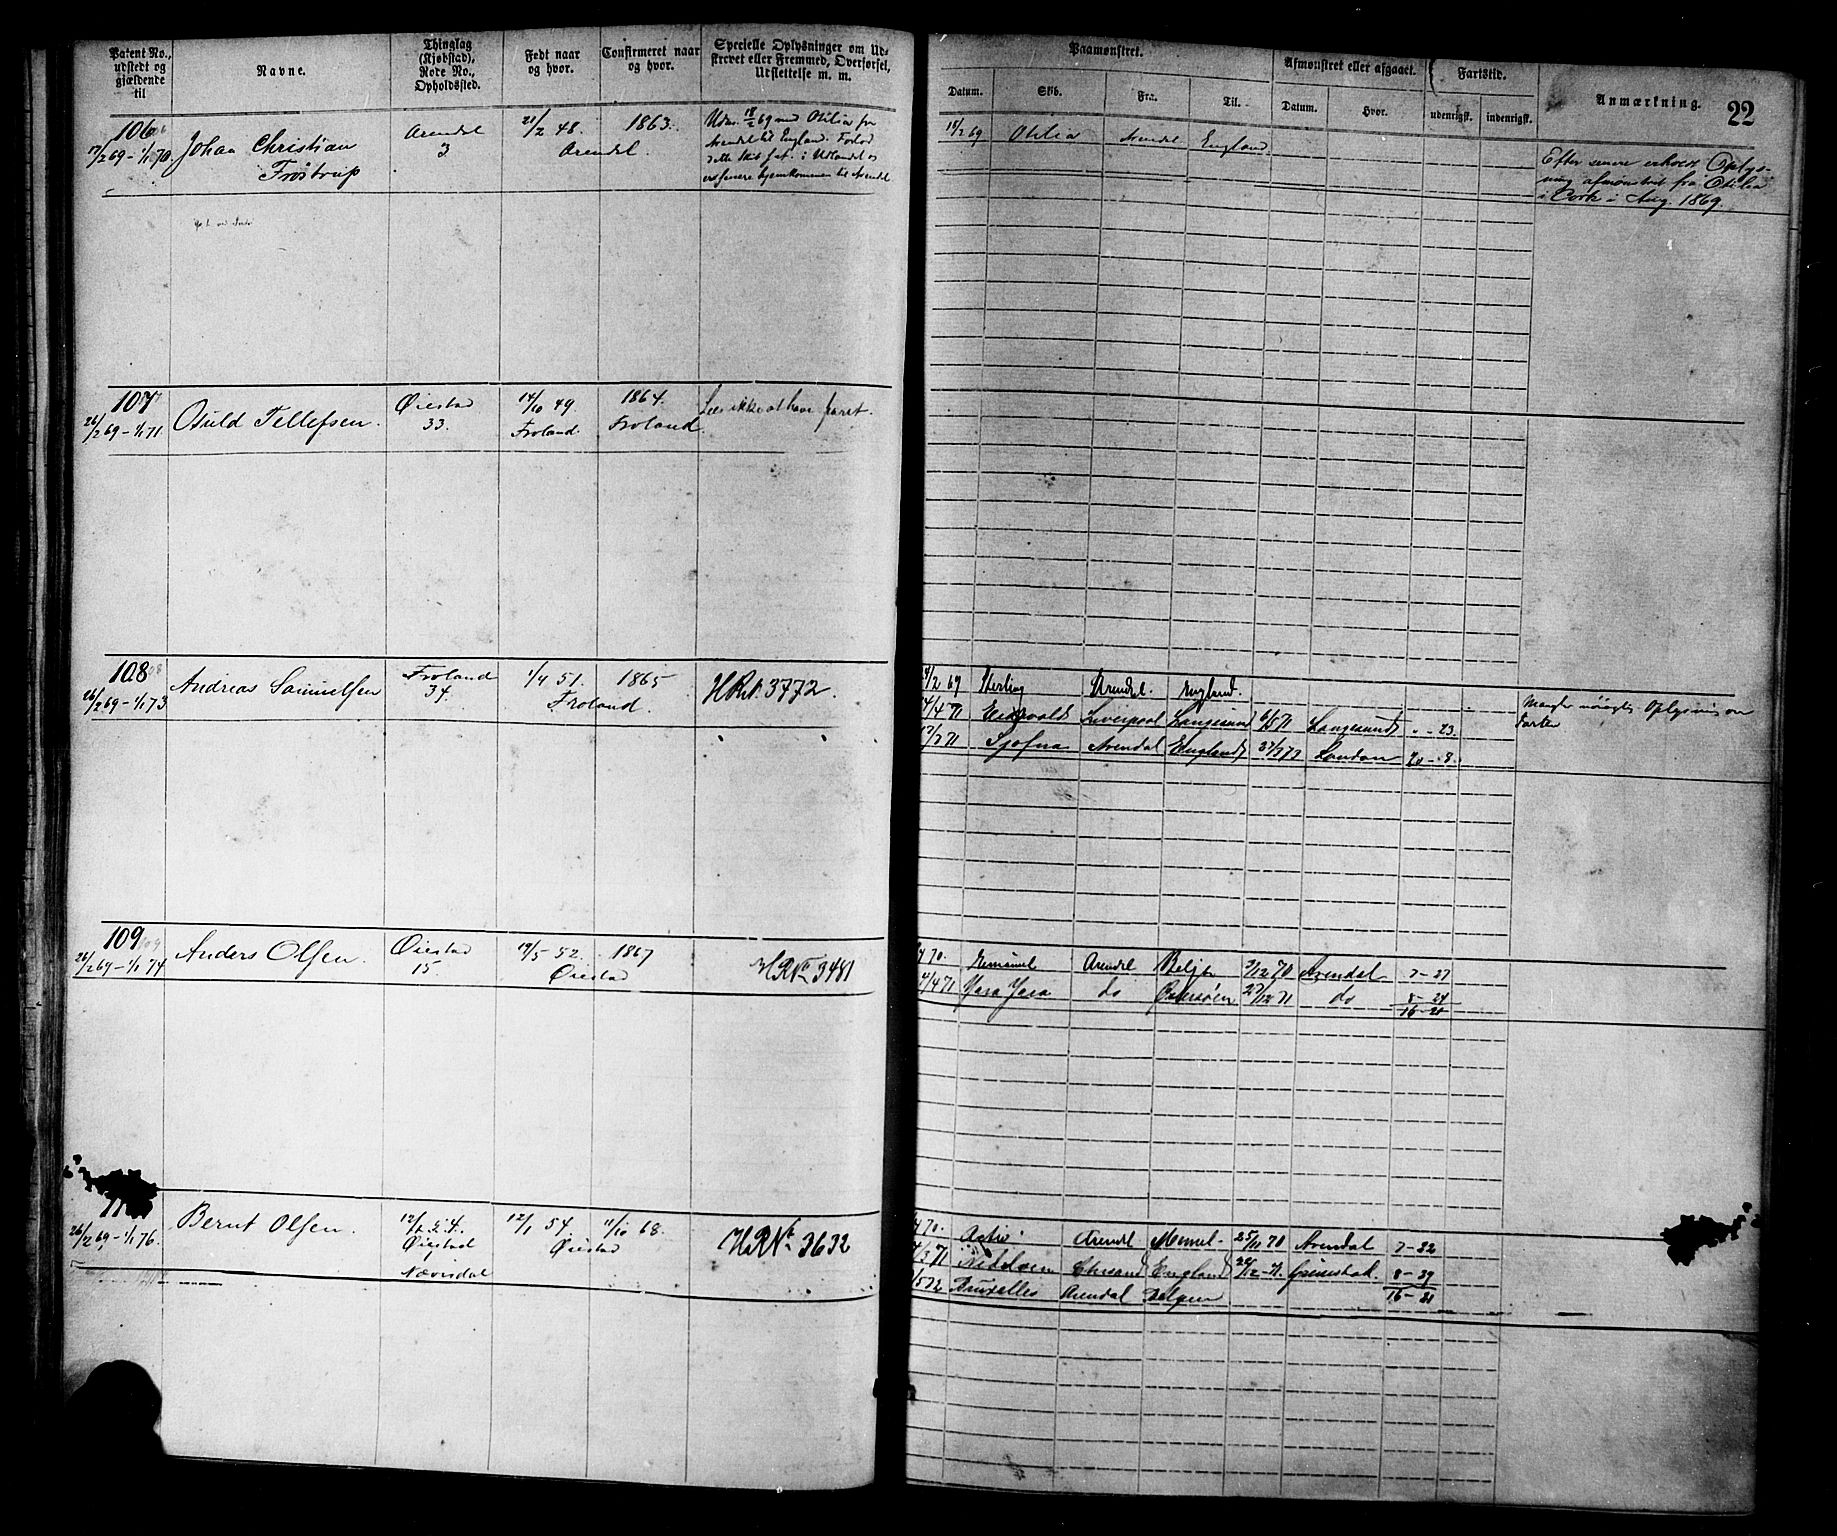 Patent No., udstedt og gjældende til
Navne.
Thinglag (Kjøbstad), Rode No., Opholdssted.
Født naar og hvor.
Confirmeret naar og hvor.
Specielle Oplysninger om Udskrevet eller Fremmed, Overførsel, Udslettelse m. m.
Paamønstret.
Datum.
Skib.
Fra.
Til.
Afmønstret eller afgaaet.
Datum.
Hvor.
Fartstid.
udenrigsk.
indenrigsk.
Anmærkning.
22
106
17/2 69 - 1/1 70.
Johan Christian
Frøstrup
Arendal
3
21/2 48.
1863.
Arendal.
Udm. 18/2 69 med Otilia fra
Arendal til England. Forlod
dette Skib i Udlandet
er senere hjemkommen til Arendal
18/2 69
Otilia
Arendal
England.
Efter senere erholdt Oplys-
ning afmønstret fra Otilia
i Cork i Aug. 1869.
107
26/2 69 - 1/1 71.
Osuld Tellefsen.
Øiestad
33.
14/10 49.
Froland.
1864.
Froland
faret.
108
26/2 69 - 1/1 73
Andreas Samuelsen
Froland
34.
1/4 51.
1865
Froland.
HRNo. 3772.
Sterling
Arendal.
England.
4/4 71
Eidsvold
Liverpool
Langesund
6/5 71
Langesund
" - 23.
Sjofna
Arendal
England
London
20 - 8.
Mangler Oplysning om
Farten
109
26/2 69 - 1/1 74
Anders Olsen.
Øiestad
15.
19/5 - 52.
1867
Øiestad
HRNo 3481
70.
Arendal
12 70
Arendal
7 - 27
4/4 71
Yara Yara
do
Østersøen
23/12 71
do
8 - 24
16 - 21
26/2 69 - 1/1 76.
Bernt Olsen.
Øiestad
Nævisdal
12/1 54.
11/10 68.
Øiestad
HRNo. 3632
70.
Activ
Arendl
Memel
25/11 70
Arendal
7 - 22
3 71
Nidelven
Chrsand
England
12 - 71.
Grimstad.
8 - 29
16 - 21
5 72
Bruxelles
Arendal
Belgien